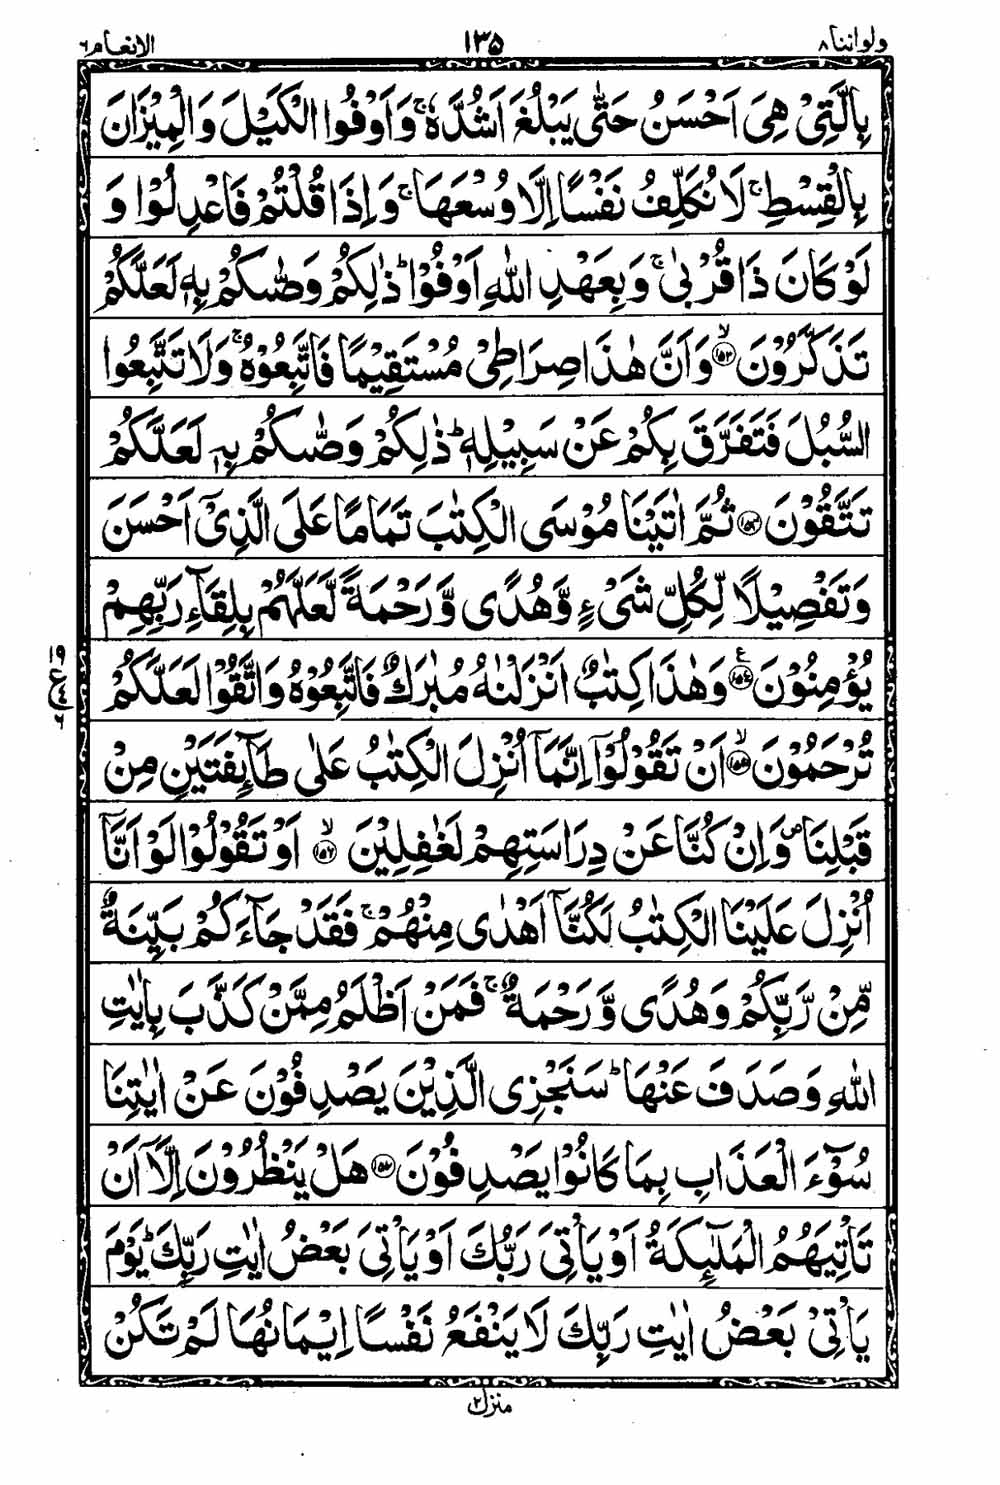 ولواننا ٨ ١٣٥ الانعام ٦
بِالَّتِيْ هِيَ اَحْسَنُ حَتّٰى يَبْلُغَ اَشُدَّهٗ ۚ وَاَوْفُوا الْكَيْلَ وَالْمِيْزَانَ
بِالْقِسْطِ ۚ لَا نُكَلِّفُ نَفْسًا اِلَّا وُسْعَهَا ۚ وَاِذَا قُلْتُمْ فَاعْدِلُوْا وَ
لَوْ كَانَ ذَا قُرْبٰى ۚ وَبِعَهْدِ اللّٰهِ اَوْفُوْا ؕ ذٰلِكُمْ وَصّٰىكُمْ بِهٖ لَعَلَّكُمْ
تَذَكَّرُوْنَ ۙ﴿١٥٢﴾ وَاَنَّ هٰذَا صِرَاطِيْ مُسْتَقِيْمًا فَاتَّبِعُوْهُ ۚ وَلَا تَتَّبِعُوا
السُّبُلَ فَتَفَرَّقَ بِكُمْ عَنْ سَبِيْلِهٖ ؕ ذٰلِكُمْ وَصّٰىكُمْ بِهٖ لَعَلَّكُمْ
تَتَّقُوْنَ ﴿١٥٣﴾ ثُمَّ اٰتَيْنَا مُوْسَى الْكِتٰبَ تَمَامًا عَلَى الَّذِيْٓ اَحْسَنَ
وَتَفْصِيْلًا لِّكُلِّ شَيْءٍ وَّهُدًى وَّرَحْمَةً لَّعَلَّهُمْ بِلِقَآءِ رَبِّهِمْ
يُؤْمِنُوْنَ ﴿١٥٤﴾ ع وَهٰذَا كِتٰبٌ اَنْزَلْنٰهُ مُبٰرَكٌ فَاتَّبِعُوْهُ وَاتَّقُوْا لَعَلَّكُمْ
تُرْحَمُوْنَ ۙ﴿١٥٥﴾ اَنْ تَقُوْلُوْٓا اِنَّمَآ اُنْزِلَ الْكِتٰبُ عَلٰى طَآئِفَتَيْنِ مِنْ
قَبْلِنَا ۪ وَاِنْ كُنَّا عَنْ دِرَاسَتِهِمْ لَغٰفِلِيْنَ ۙ﴿١٥٦﴾ اَوْ تَقُوْلُوْا لَوْ اَنَّآ
اُنْزِلَ عَلَيْنَا الْكِتٰبُ لَكُنَّآ اَهْدٰى مِنْهُمْ ۚ فَقَدْ جَآءَكُمْ بَيِّنَةٌ
مِّنْ رَّبِّكُمْ وَهُدًى وَّرَحْمَةٌ ۚ فَمَنْ اَظْلَمُ مِمَّنْ كَذَّبَ بِاٰيٰتِ
اللّٰهِ وَصَدَفَ عَنْهَا ؕ سَنَجْزِي الَّذِيْنَ يَصْدِفُوْنَ عَنْ اٰيٰتِنَا
سُوْٓءَ الْعَذَابِ بِمَا كَانُوْا يَصْدِفُوْنَ ﴿١٥٧﴾ هَلْ يَنْظُرُوْنَ اِلَّآ اَنْ
تَاْتِيَهُمُ الْمَلٰٓئِكَةُ اَوْ يَاْتِيَ رَبُّكَ اَوْ يَاْتِيَ بَعْضُ اٰيٰتِ رَبِّكَ ؕ يَوْمَ
يَاْتِيْ بَعْضُ اٰيٰتِ رَبِّكَ لَا يَنْفَعُ نَفْسًا اِيْمَانُهَا لَمْ تَكُنْ
منزل ٢